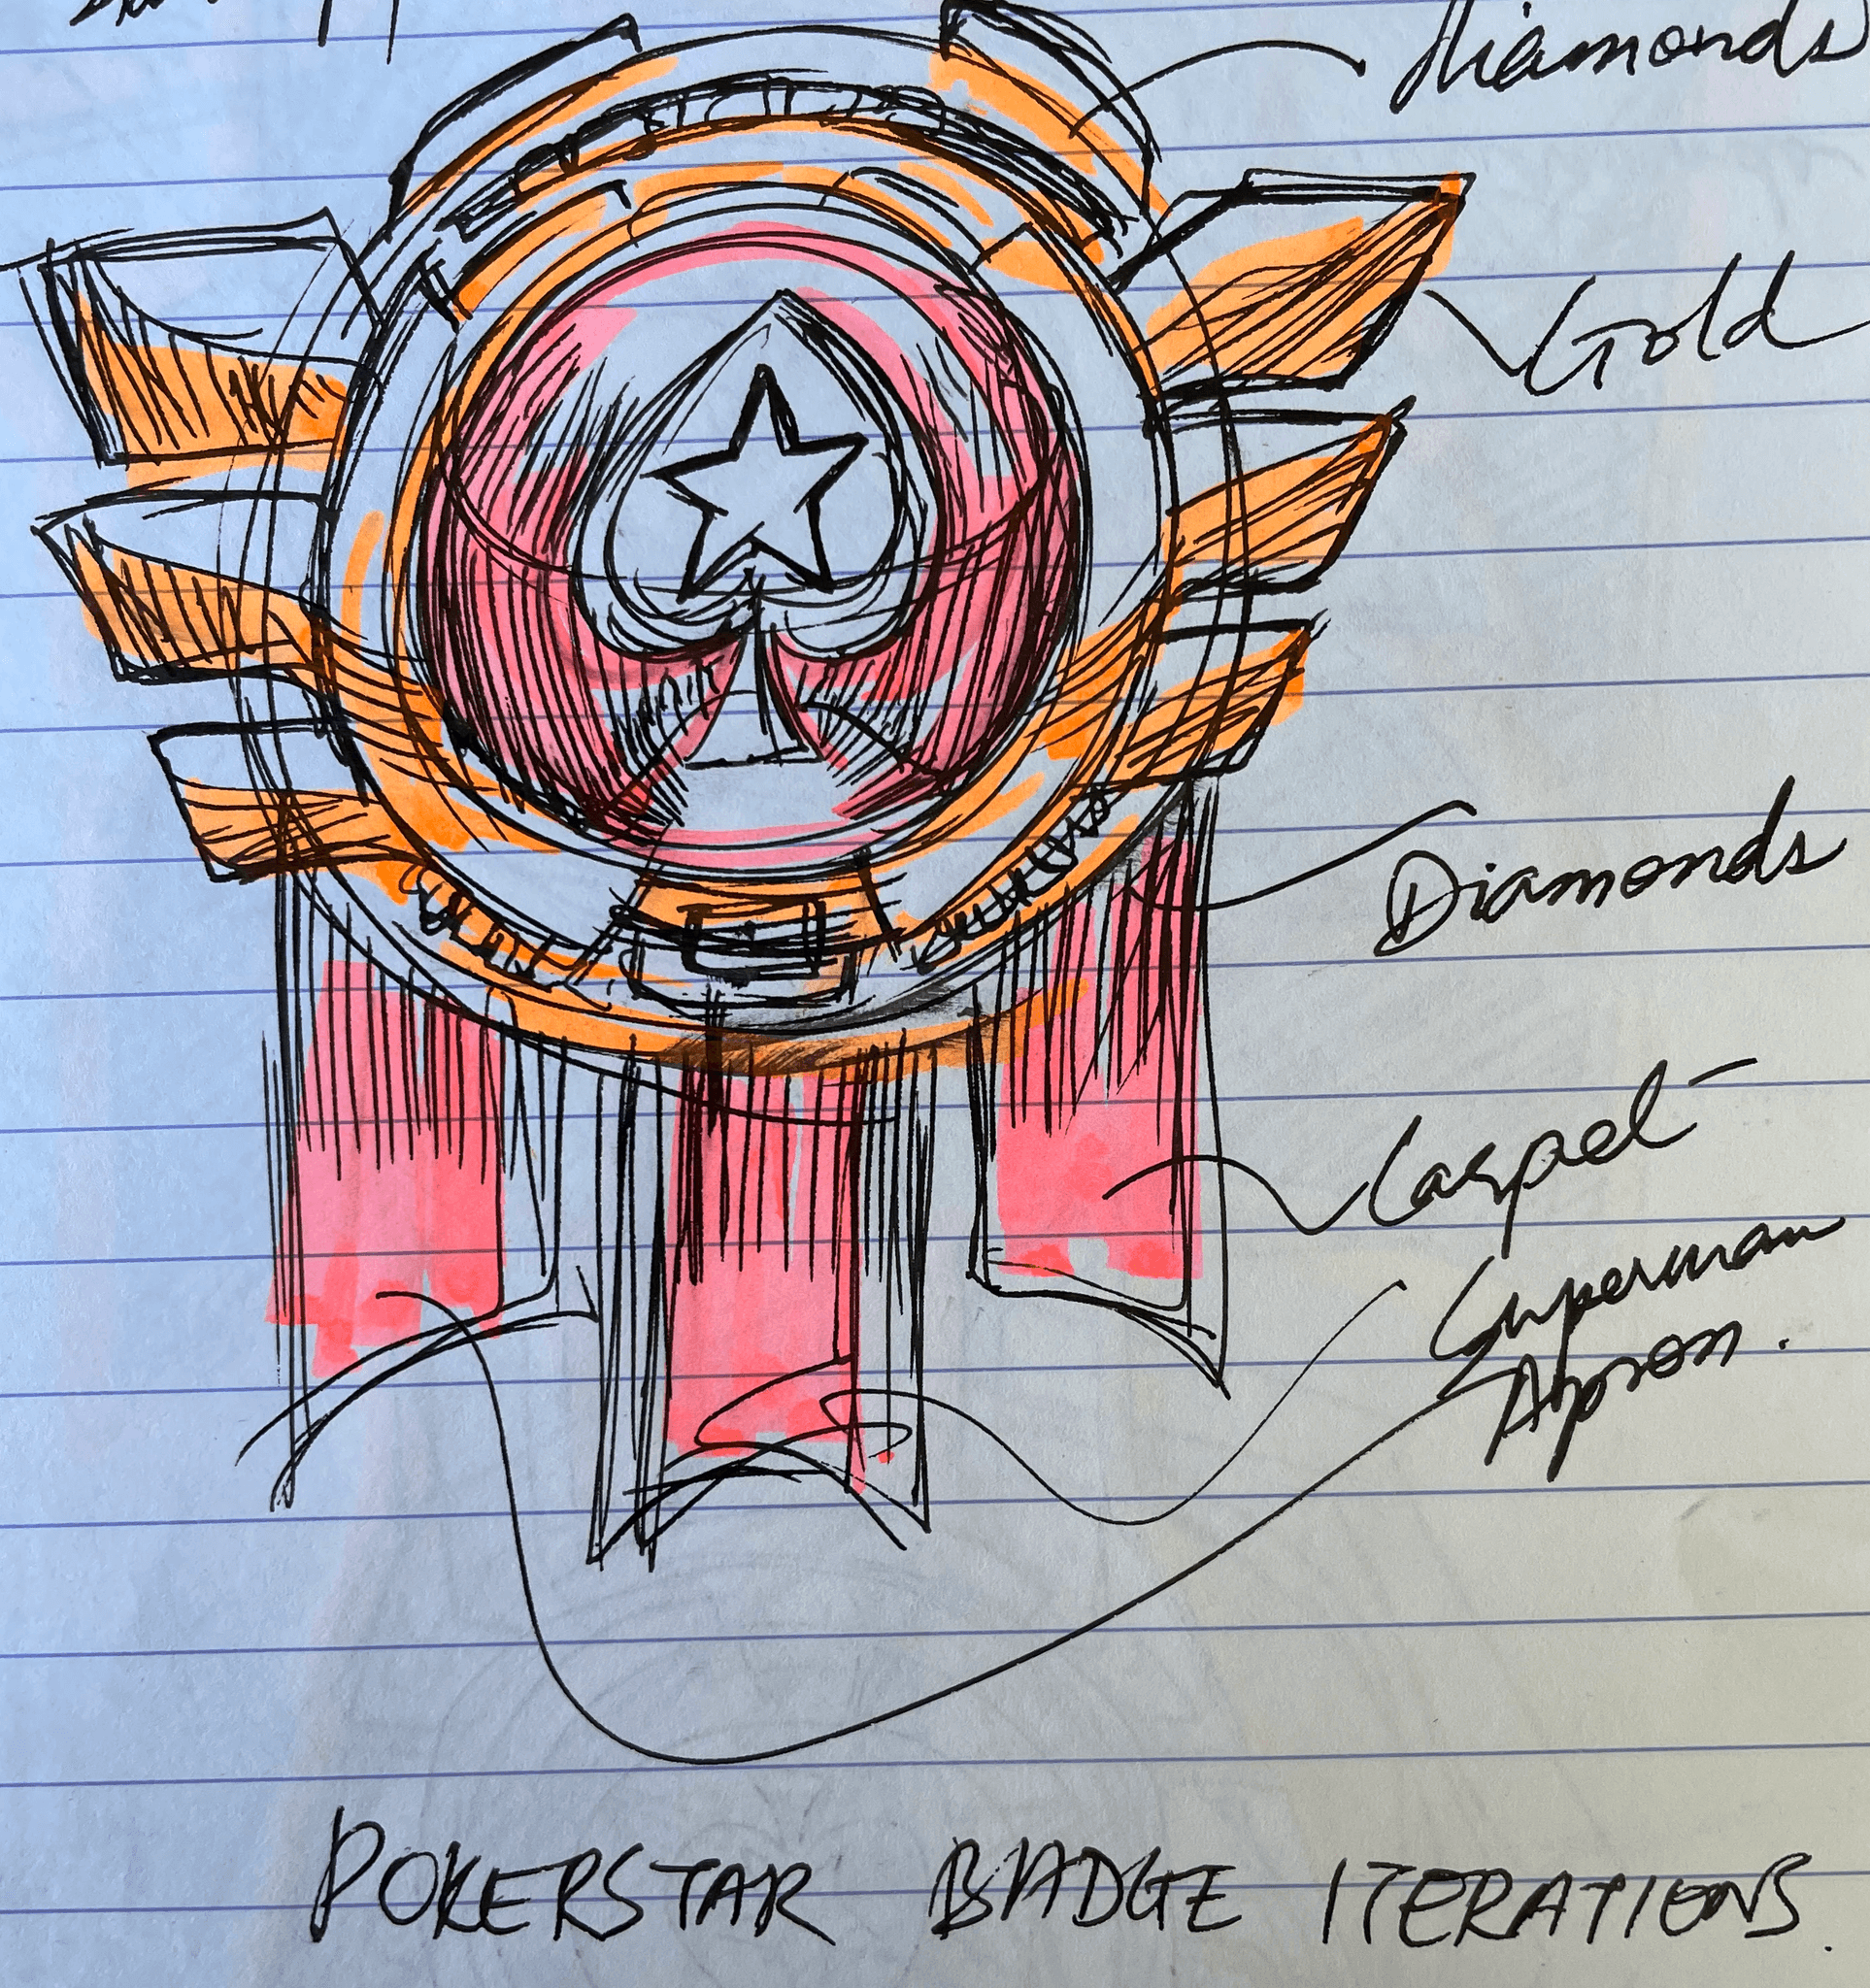 Diamonds
Gold
Diamonds
Carpet -
Superman
Apron.
POKERSTAR BADGE ITERATIONS.